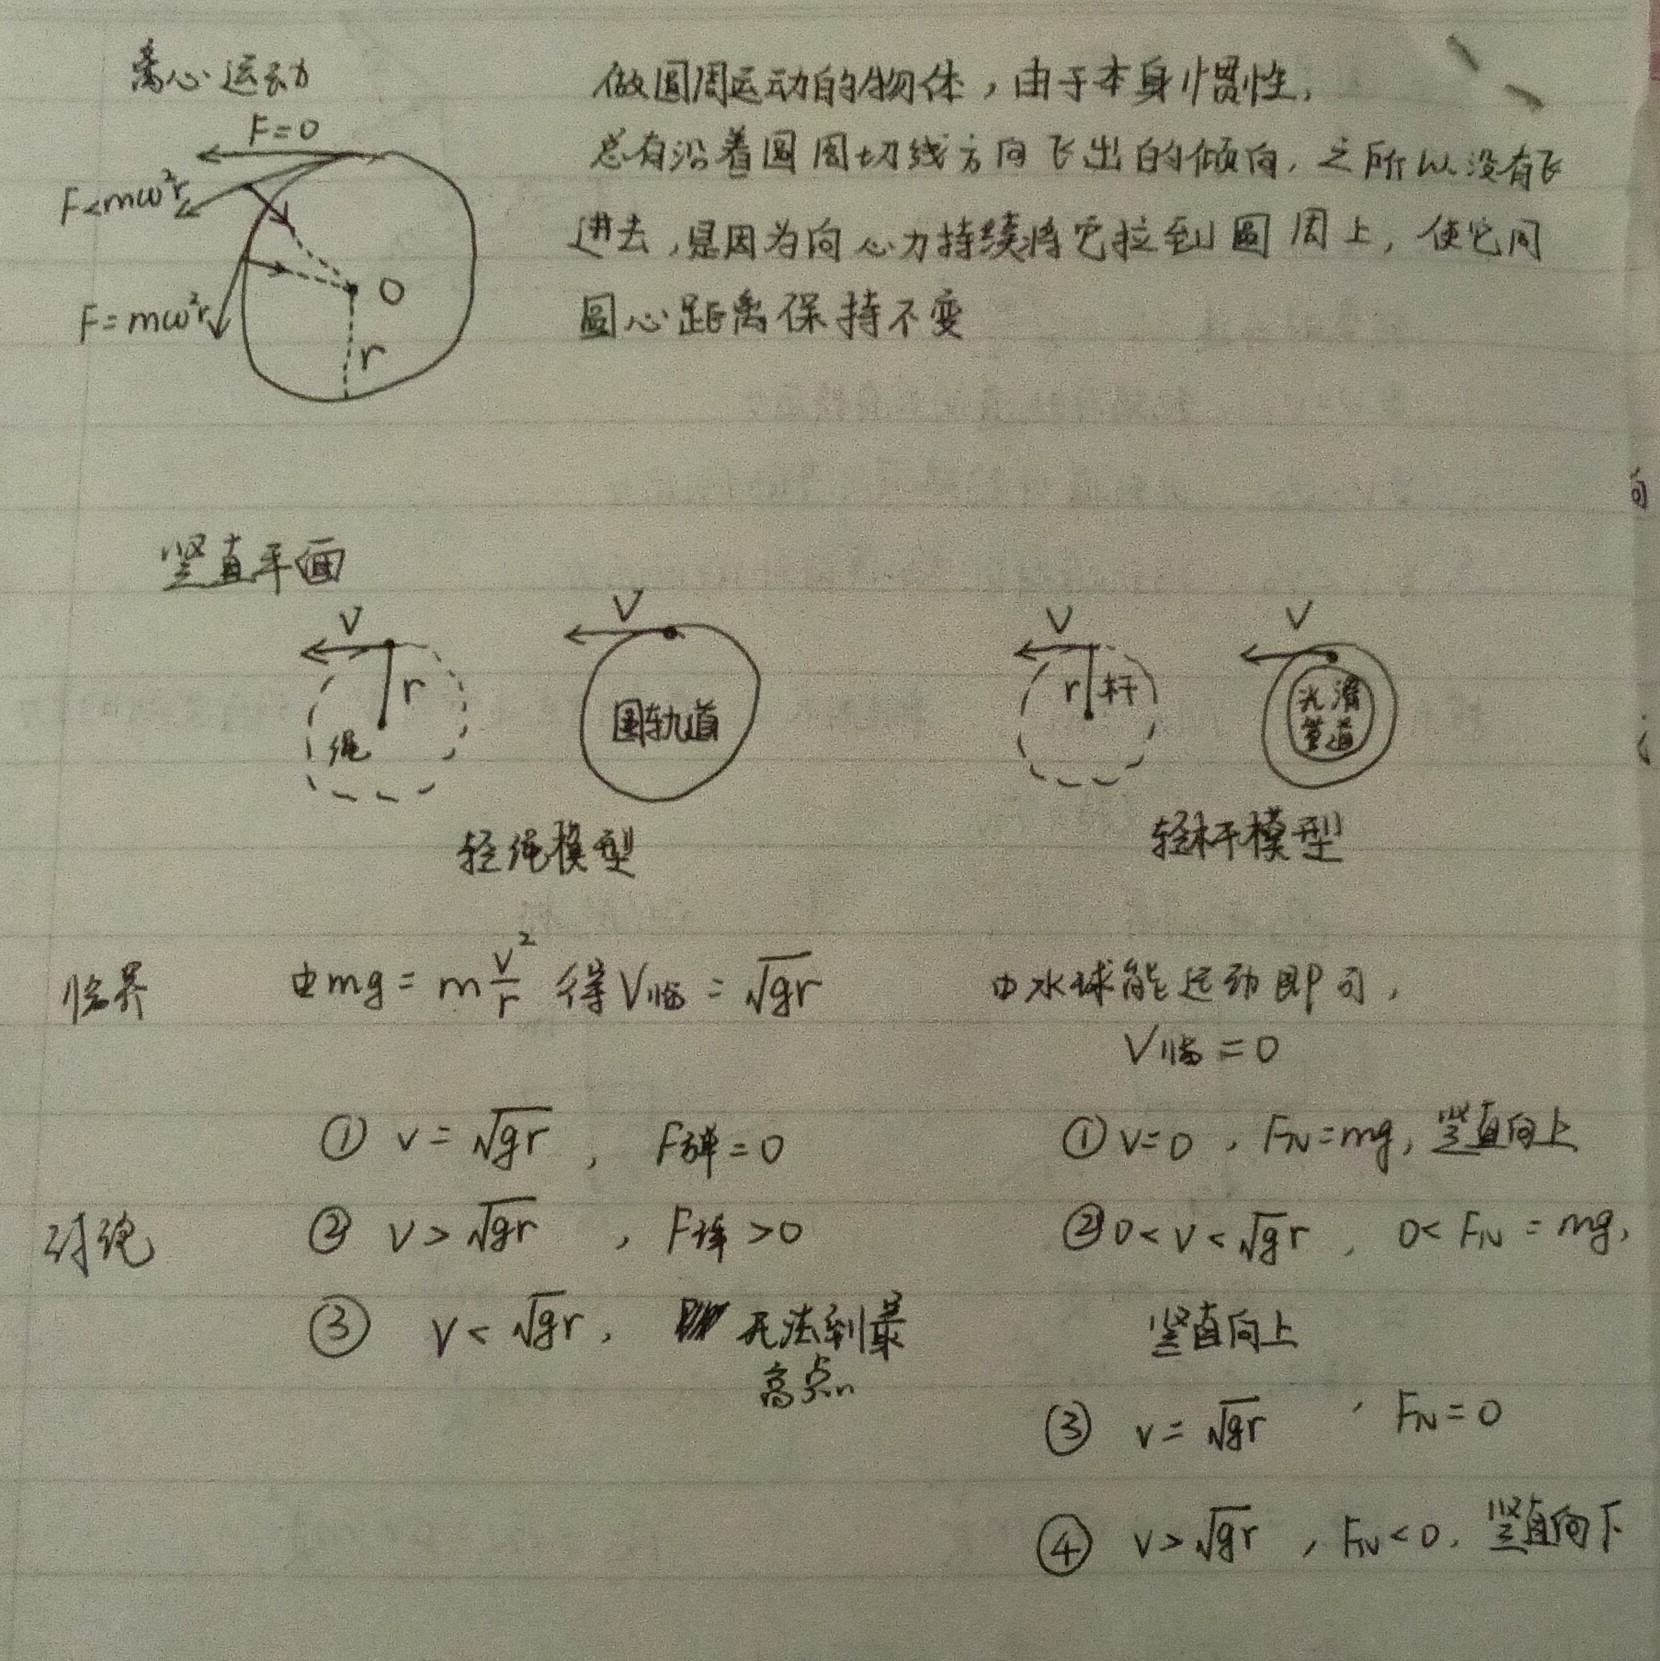 离心运动
做圆周运动的物体，由于本身惯性，
F=0
总有沿着圆周切线方向飞出的倾向，之所以没有飞
F<mω²r
进去，是因为向心力持续将它拉到圆周上，使它同
F=mω²r
O
圆心距离保持不变
r
竖直平面
V
V
V
V
r
绳
圆轨道
r
杆
光滑
管道
轻绳模型
轻杆模型
临界
由mg=m\frac{v²}{r} 得V临=√gr
由水球能运动即可，
V临=0
① v=√gr， F弹=0
① v=0，FN=mg，竖直向上
讨论
② v>√gr ，F弹>0
② 0<v<√gr， 0<FN=mg，
③ v<√gr， 无法到最
高点
竖直向上
③ v=√gr ，FN=0
④ v>√gr，FN<0，竖直向下
向